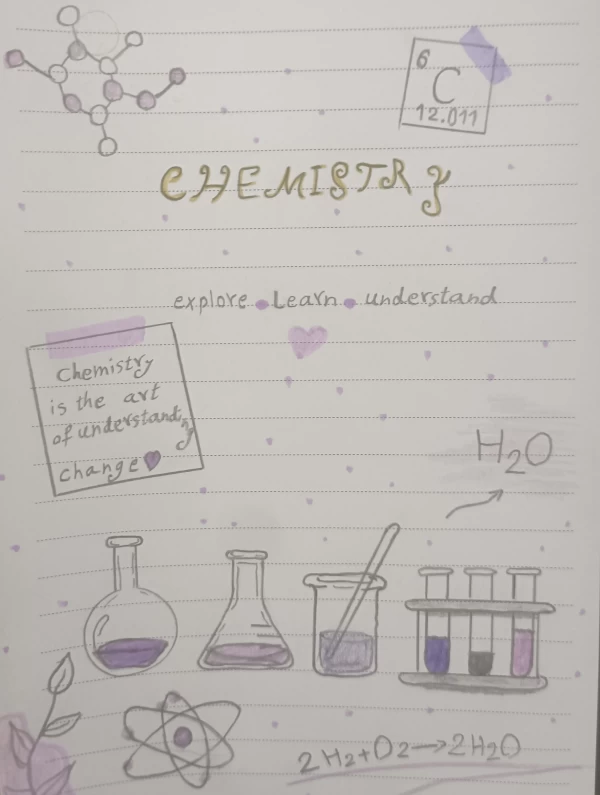 6
C
12.011
CHEMISTRY
explore • Learn • understand
Chemistry
is the art
of understanding
change
H₂O
2H₂+O₂→2H₂O